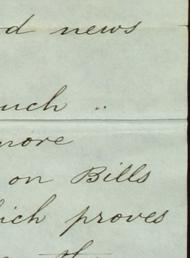 d news
uch ..
more
on Bills
hich proves
the